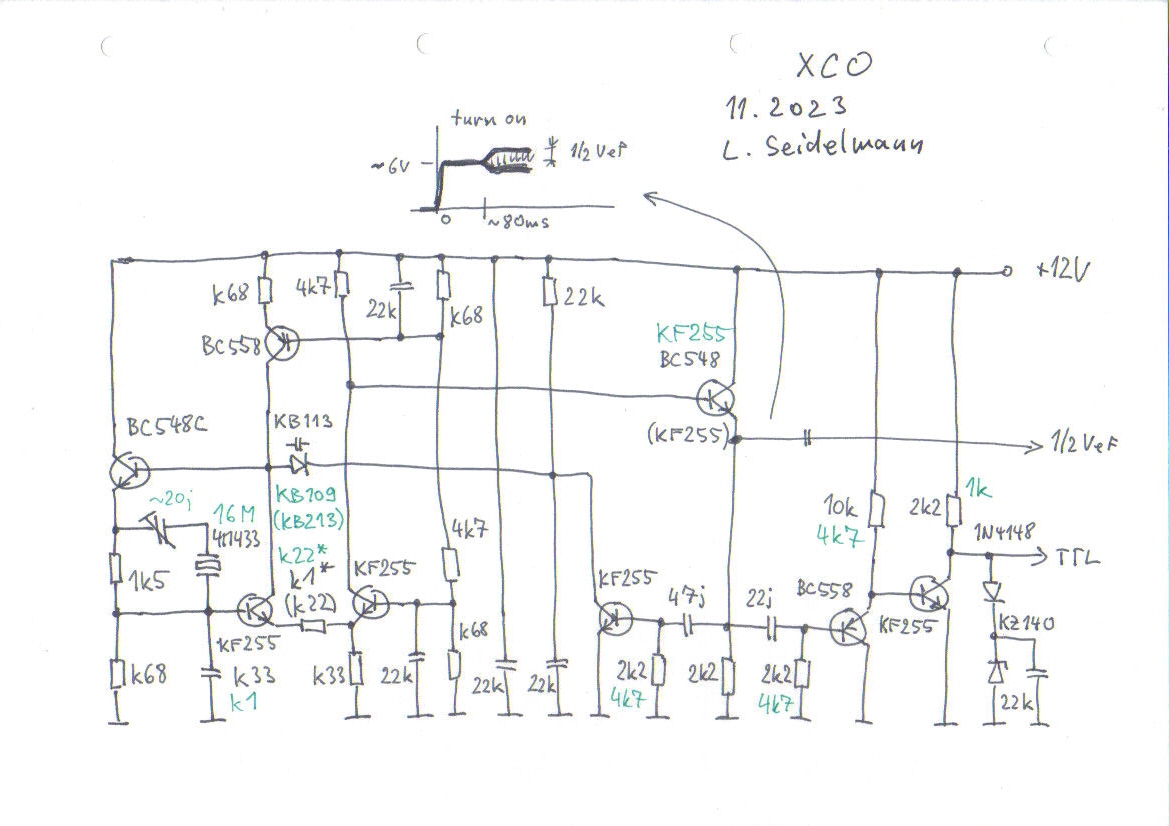 XCO
11.2023
L. Seidelmann
turn on
~6V
1/2 Vef
0
~80ms
+12V
k68
4k7
22k
k68
22k
BC558
KF255
BC548
(KF255)
1/2 Vef
BC548C
KB113
KB109
(KB213)
~20j
16M
4M433
k22*
k1*
(k22)
1k5
KF255
KF255
4k7
k68
k68
k33
k1
k33
22k
22k
22k
KF255
47j
22j
2k2
4k7
2k2
2k2
4k7
10k
4k7
2k2
1k
1N4148
TTL
BC558
KF255
KZ140
22k